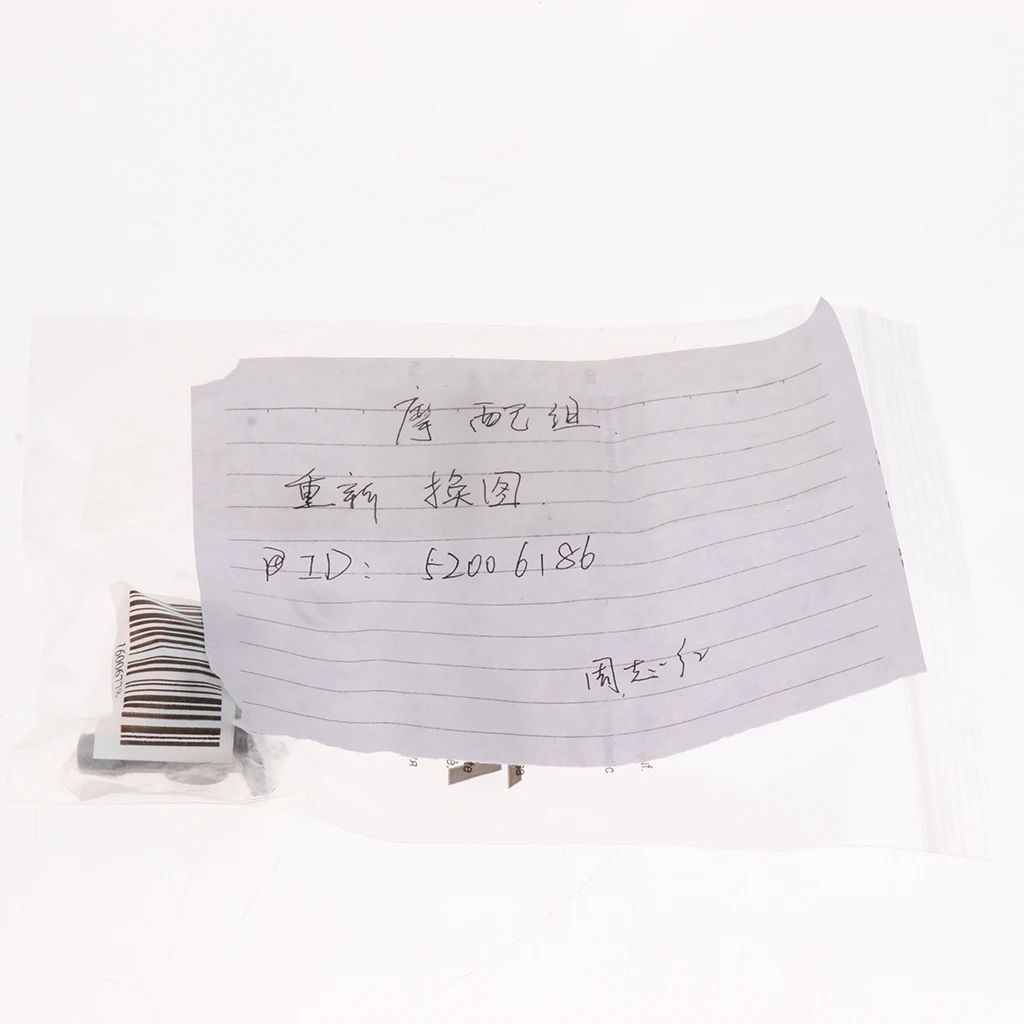 摩配组.
重新 换图.
ID: 52006186
周志红